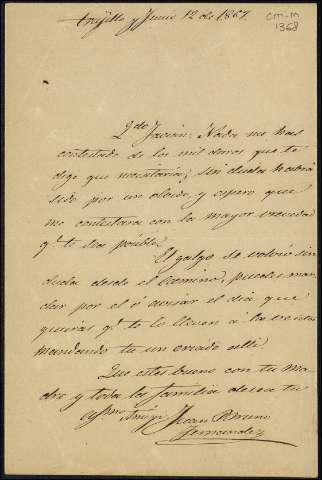 Trujillo y Junio 12 de 1867.
CM-M
1368
Qdo Javier: Nada me has
contestado de los mil duros que te
dige que necesitaria; sin duda habrá
sido por un olvido, y espero que
me contestara con la mayor brevedad
qe te sea posible.
El galgo se volvió sin
duda desde el camino; puedes man-
dar por el ó avisar el dia que
quieras qe te lo lleven á la venta
mandando tu un criado alli
Que estes bueno con tu Ma-
dre y toda la familia desea tu
affmo Amigo Juan
Fernandez